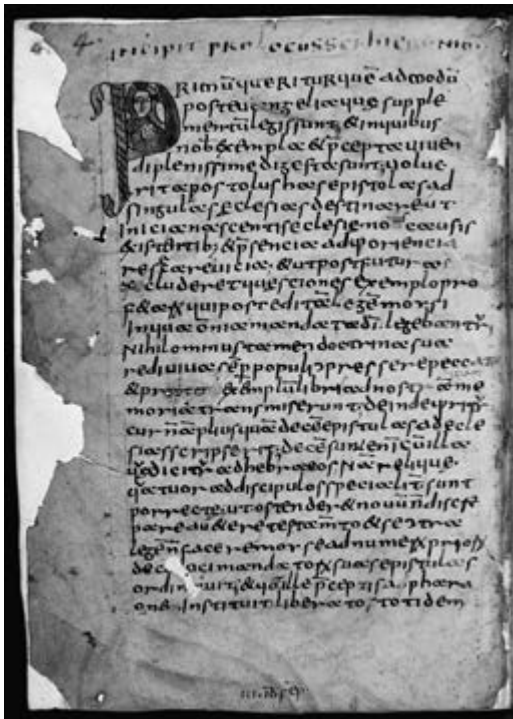 4.
incipit prologus sci hieronimi
PRIMŪ QUERITUR QUĒADMODŪ
post evangelia que supple
mentū legis sunt; & in quibus
nob exempla & p̄cepta viven
di plenissime digesta sunt; volue
rit apostolus has epistolas ad
singulas eclesias destinare ut
inicia nascentis eclesie causis
existentib; & p̄sencia adq; oriencia
resecaret vicia; & ut post futuras
excluderet questiones exemplo pro
f& qui post edita legē morsi
in qua om̄ia mandata dī legebant̄
Nihilominus tamen doctrina sua
rediviva sēp populi pressere pecca
& exemplū libri ad nostrā me
moriā transmiserunt; deinde
cur nā plus quā decē epistulas ad ecle
sias scripserit; decē sunt enī cū illa
dicit ad hebraeos Nā relique
quatuor ad discipulos specialit̄ sunt
porrecte; ut ostender& novū n̄ discre
pare a v&ere testam̄to & se
legē n̄ facere morse ad numer prior
decalogi mandator suas epistulas
ordinavit; & quot ille p̄ceptis a phara
one instituit liberatos, totidem